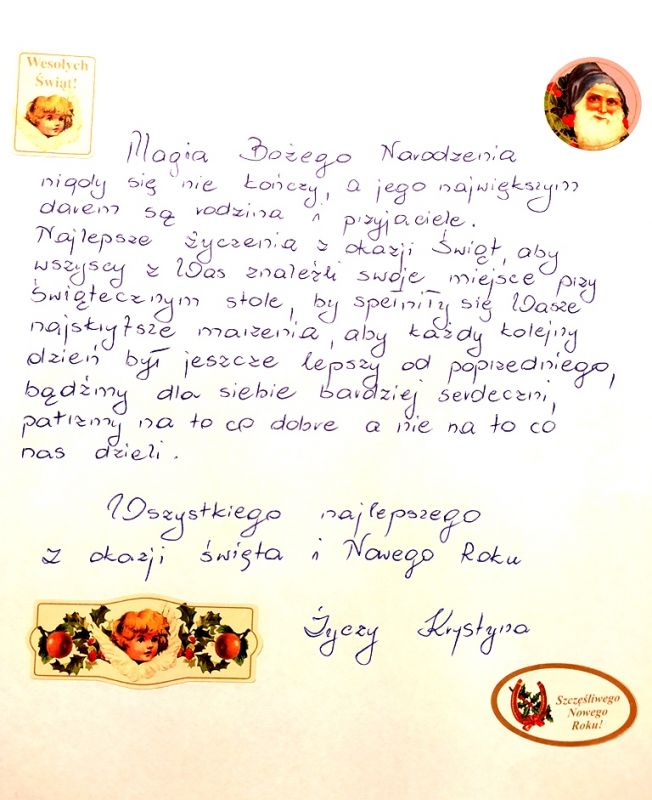 Wesołych
Świąt!
Magia Bożego Narodzenia
nigdy się nie kończy, a jego największym
darem są rodzina i przyjaciele.
Najlepsze życzenia z okazji Świąt, aby
wszyscy z Was znaleźli swoje miejsce przy
świątecznym stole, by spełniły się Wasze
najskrytsze marzenia, aby każdy kolejny
dzień był jeszcze lepszy od poprzedniego,
bądźmy dla siebie bardziej serdeczni,
patrzmy na to co dobre a nie na to co
nas dzieli.
Wszystkiego najlepszego
z okazji święta i Nowego Roku
Życzy Krystyna
Szczęśliwego
Nowego
Roku!